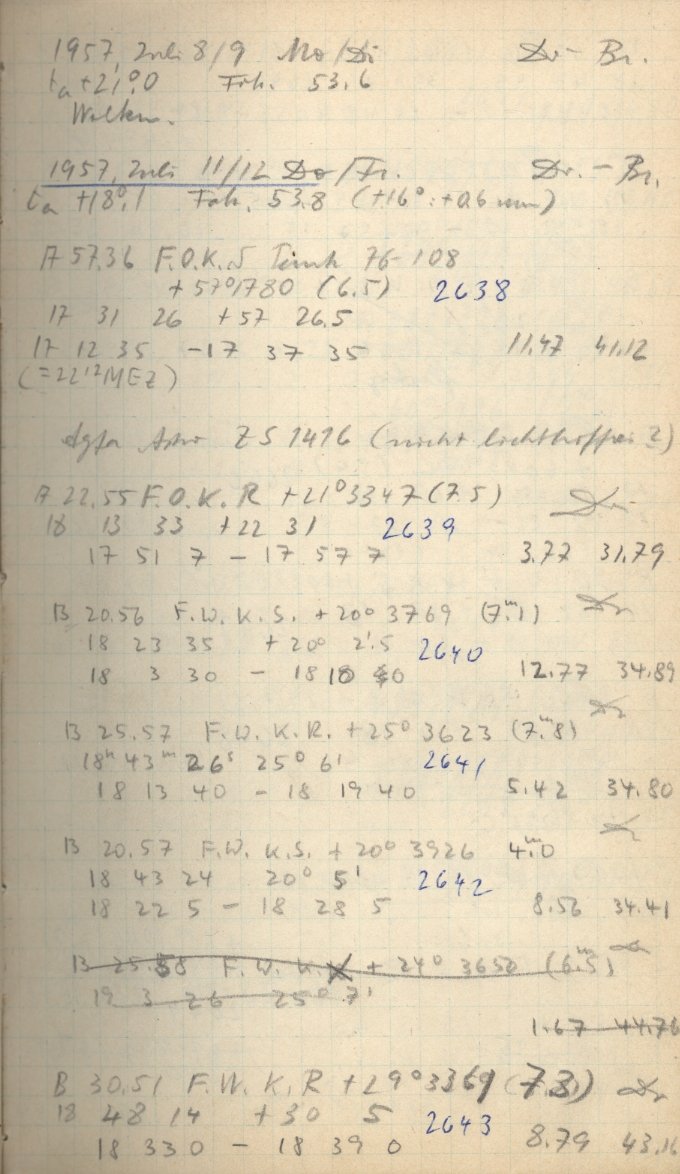 1957, Juli 8/9 Mo/Di Dr - Br.
ta +21°.0 Feh. 53.6
Wolken.
1957, Juli 11/12 Do/Fr. Dr. - Br.
ta +18°.1 Feh. 53.8 (+16° : +0.6 mm)
A 57.36 F.O.K.S 76-108
+57°1780 (6.5) 2638
17 31 26 +57 26.5
17 12 35 - 17 37 35 11.47 41.12
(=22 12 MEZ)
Agfa Astro ZS 1416 (nicht lichthoffrei ?)
A 22.55 F.O.K.R +21°3347 (7.5) Dr
18 13 33 +22 31 2639
17 51 7 - 17 57 7 3.77 31.79
B 20.56 F.W.K.S. +20° 3769 (7m.1) Dr
18 23 35 +20° 2'.5 2640
18 3 30 - 18 10 0 12.77 34.89
B 25.57 F.W.K.R. +25° 3623 (7m.8) Dr
18h 43m 26s 25° 6' 2641
18 13 40 - 18 19 40 5.42 34.80
B 20.57 F.W.K.S. +20° 3926 4m.0 Dr
18 43 24 20° 5' 2642
18 22 5 - 18 28 5 8.56 34.41
B 25.58 F.W.K. +24° 3650 (6m.5) Dr
19 3 26 25° 7'
1.67 44.76
B 30.51 F.W.K.R +29°3369 (7.3) Dr
18 48 14 +30 5 2643
18 33 0 - 18 39 0 8.79 43.16